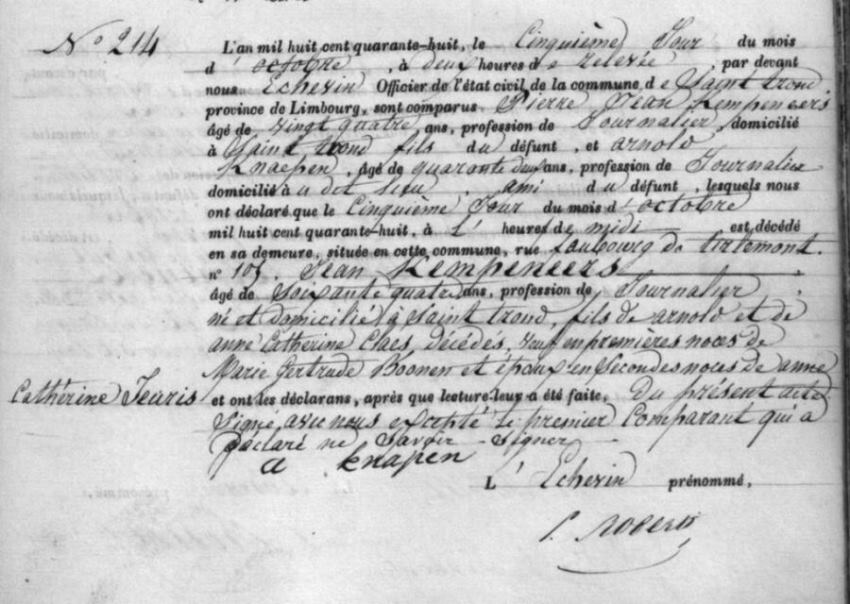 N° 214
L'an mil huit cent quarante-huit, le Cinquième Jour du mois
d' octobre, à deux heures de relevée, par devant
nous Echevin Officier de l'état civil de la commune de Saint trond
province de Limbourg, sont comparus Pierre Jean Kempeneers
âgé de vingt quatre ans, profession de Journalier, domicilié
à Saint trond fils du défunt, et arnold
Knaepen, âgé de quarante deux ans, profession de Journalier
domicilié à u dit lieu, ami du défunt, lesquels nous
ont déclaré que le Cinquième Jour du mois d'octobre
mil huit cent quarante-huit, à L' heures de midi est décédé
en sa demeure, située en cette commune, rue faubourg de tirlemont.
n° 105. Jean Kempeneers
âgé de Soixante quatre ans, profession de Journalier
né et domicilié à Saint trond, fils de arnold et de
anne Catherine Claes décédés, veuf en premières noces de
Marie Gertrude Boonen et époux en Secondes noces de anne
Cathérine Jeuris et ont les déclarans, après que lecture leur a été faite, Du présent acte
Signé avec nous excepté le premier Comparant qui a
Déclaré ne Savoir Signer
a knapen
L' Echevin prénommé,